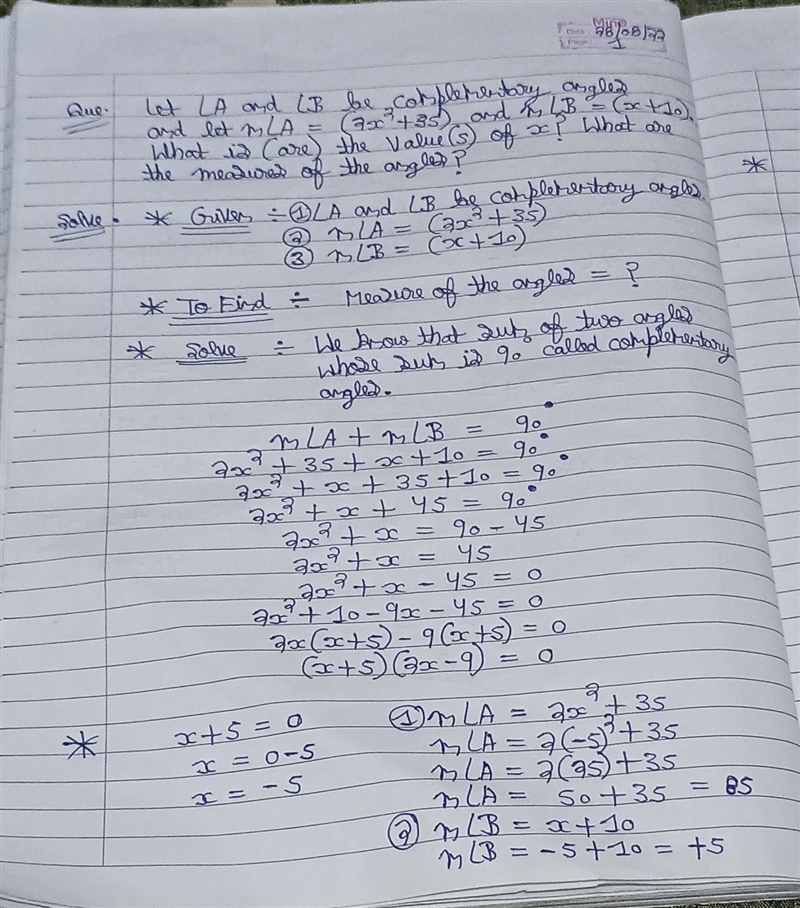 Date 28/08/22
Page 1
Que. Let ∠A and ∠B be complementary angles
and let m∠A = (2x²+35) and m∠B = (x+10).
What is (are) the value(s) of x? What are
the measures of the angles?
Solve. * Given ÷ ① ∠A and ∠B be complementary angles.
② m∠A = (2x²+35)
③ m∠B = (x+10)
* To Find ÷ Measure of the angles = ?
* Solve ÷ We know that sum of two angles
whose sum is 90 called complementary
angles.
m∠A + m∠B = 90°
2x² + 35 + x + 10 = 90°
2x² + x + 35 + 10 = 90°
2x² + x + 45 = 90°
2x² + x = 90 - 45
2x² + x = 45
2x² + x - 45 = 0
2x² + 10 - 9x - 45 = 0
2x(x+5) - 9(x+5) = 0
(x+5)(2x-9) = 0
* x+5 = 0
x = 0-5
x = -5
① m∠A = 2x² + 35
m∠A = 2(-5)² + 35
m∠A = 2(25) + 35
m∠A = 50 + 35 = 85
② m∠B = x+10
m∠B = -5+10 = +5
*